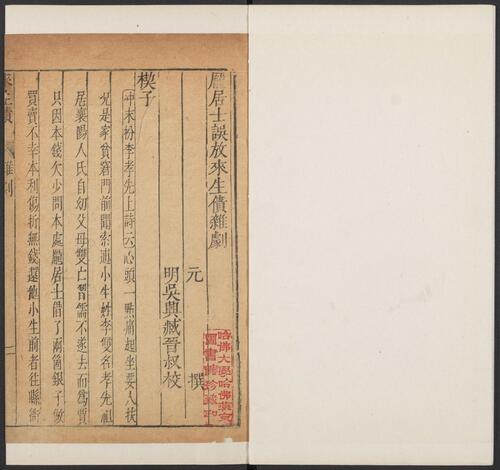 龐居士誤放來生債雜劇
元 撰
明吳興臧晉叔校
楔子
冲末扮李孝先上詩云心頭一點痛起坐要人扶
況是家貧窘門前聞索逋小生姓李雙名孝先祖
居襄陽人氏自幼父母雙亡習儒不遂去而爲賈
只因本錢欠少問本處龐居士借了兩箇銀子做
買賣不幸本利傷折無錢還他小生前者往縣衙
來生債 雜劇 一
哈佛大學哈佛燕京
圖書館珍藏印